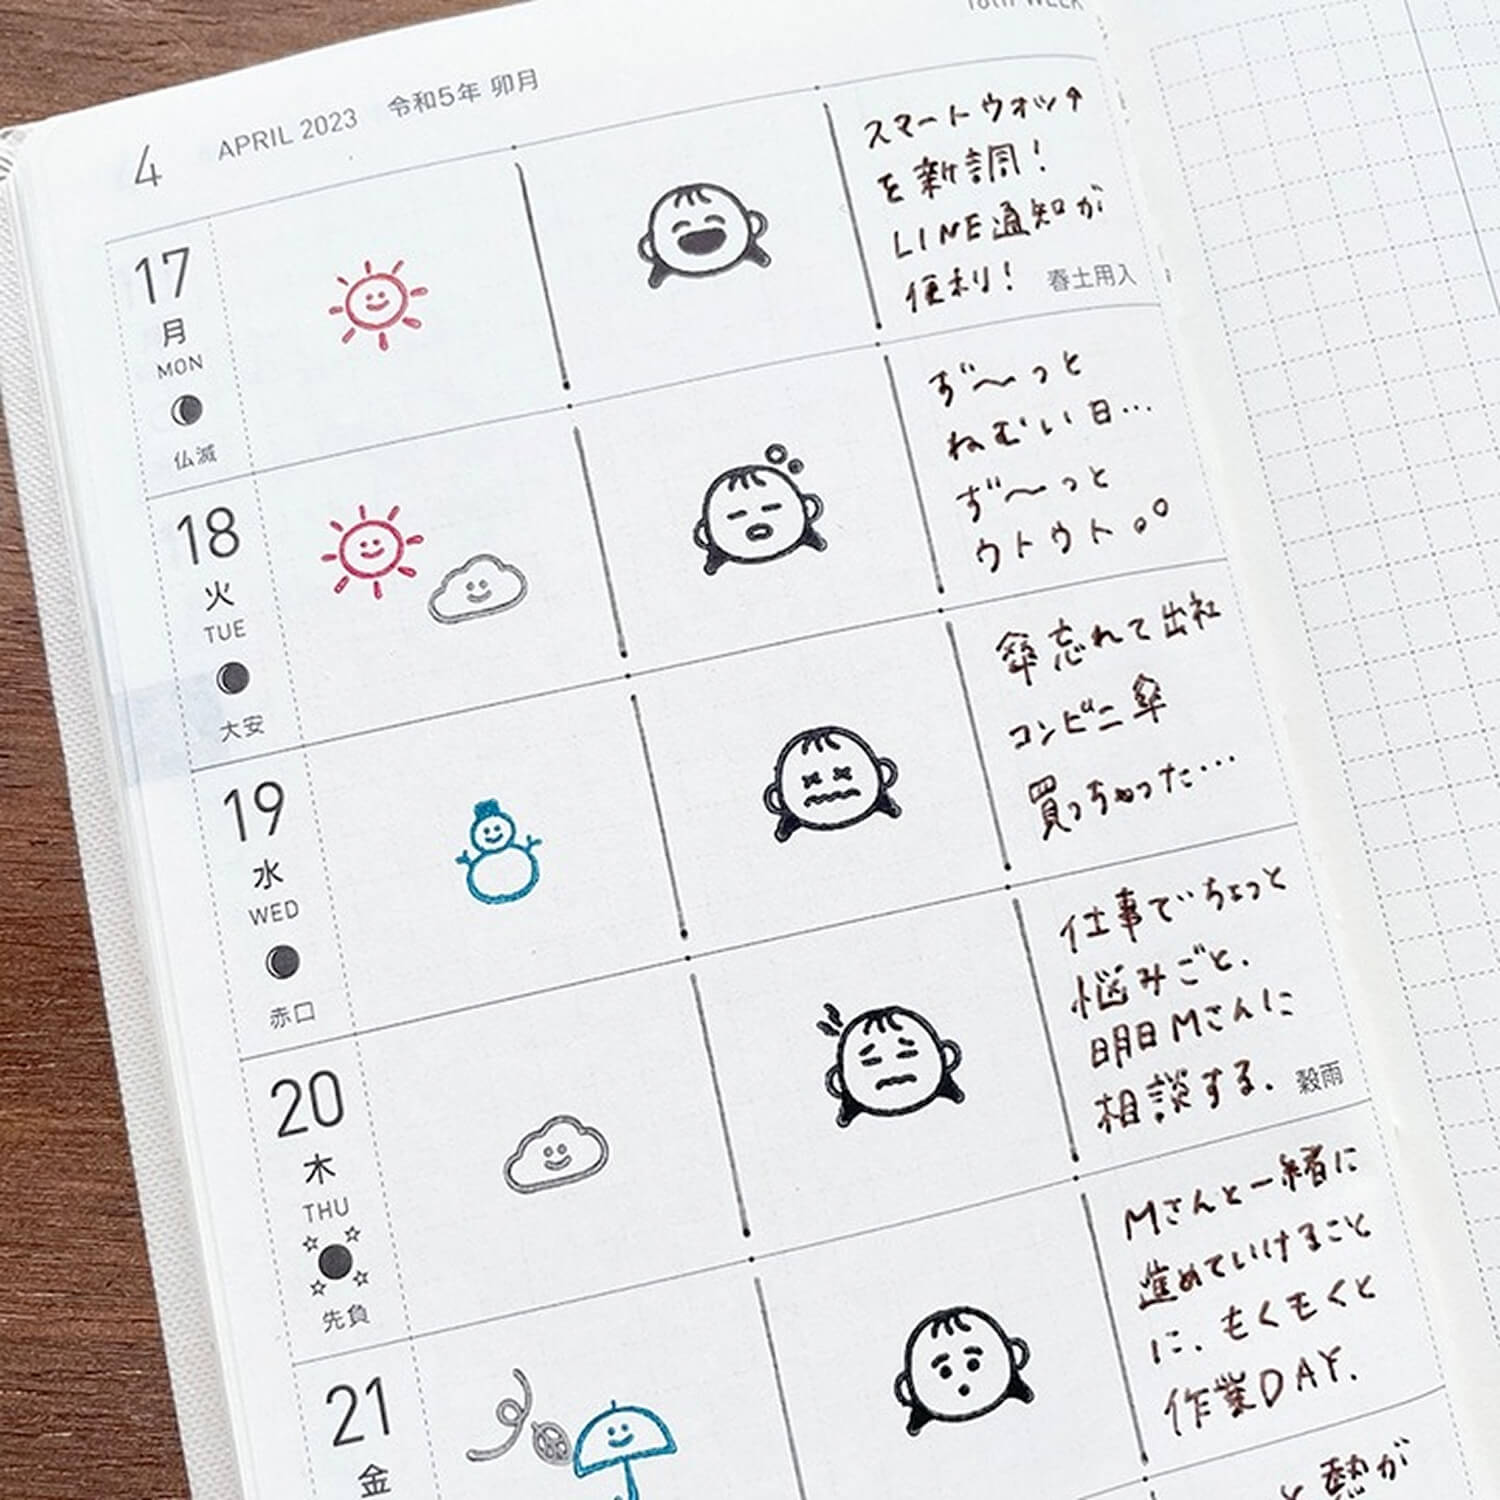 16th WEEK
4 APRIL 2023 令和5年 卯月
17
月
MON
仏滅
スマートウォッチ
を新調!
LINE通知が
便利! 春土用入
18
火
TUE
大安
ず〜っと
ねむい日…
ず〜っと
ウトウト。○
19
水
WED
赤口
傘忘れて出社
コンビニ傘
買っちゃった…
20
木
THU
先負
仕事でちょっと
悩みごと、
明日Mさんに
相談する. 穀雨
21
金
Mさんと一緒に
進めていけること
に、もくもくと
作業DAY.
と熱が